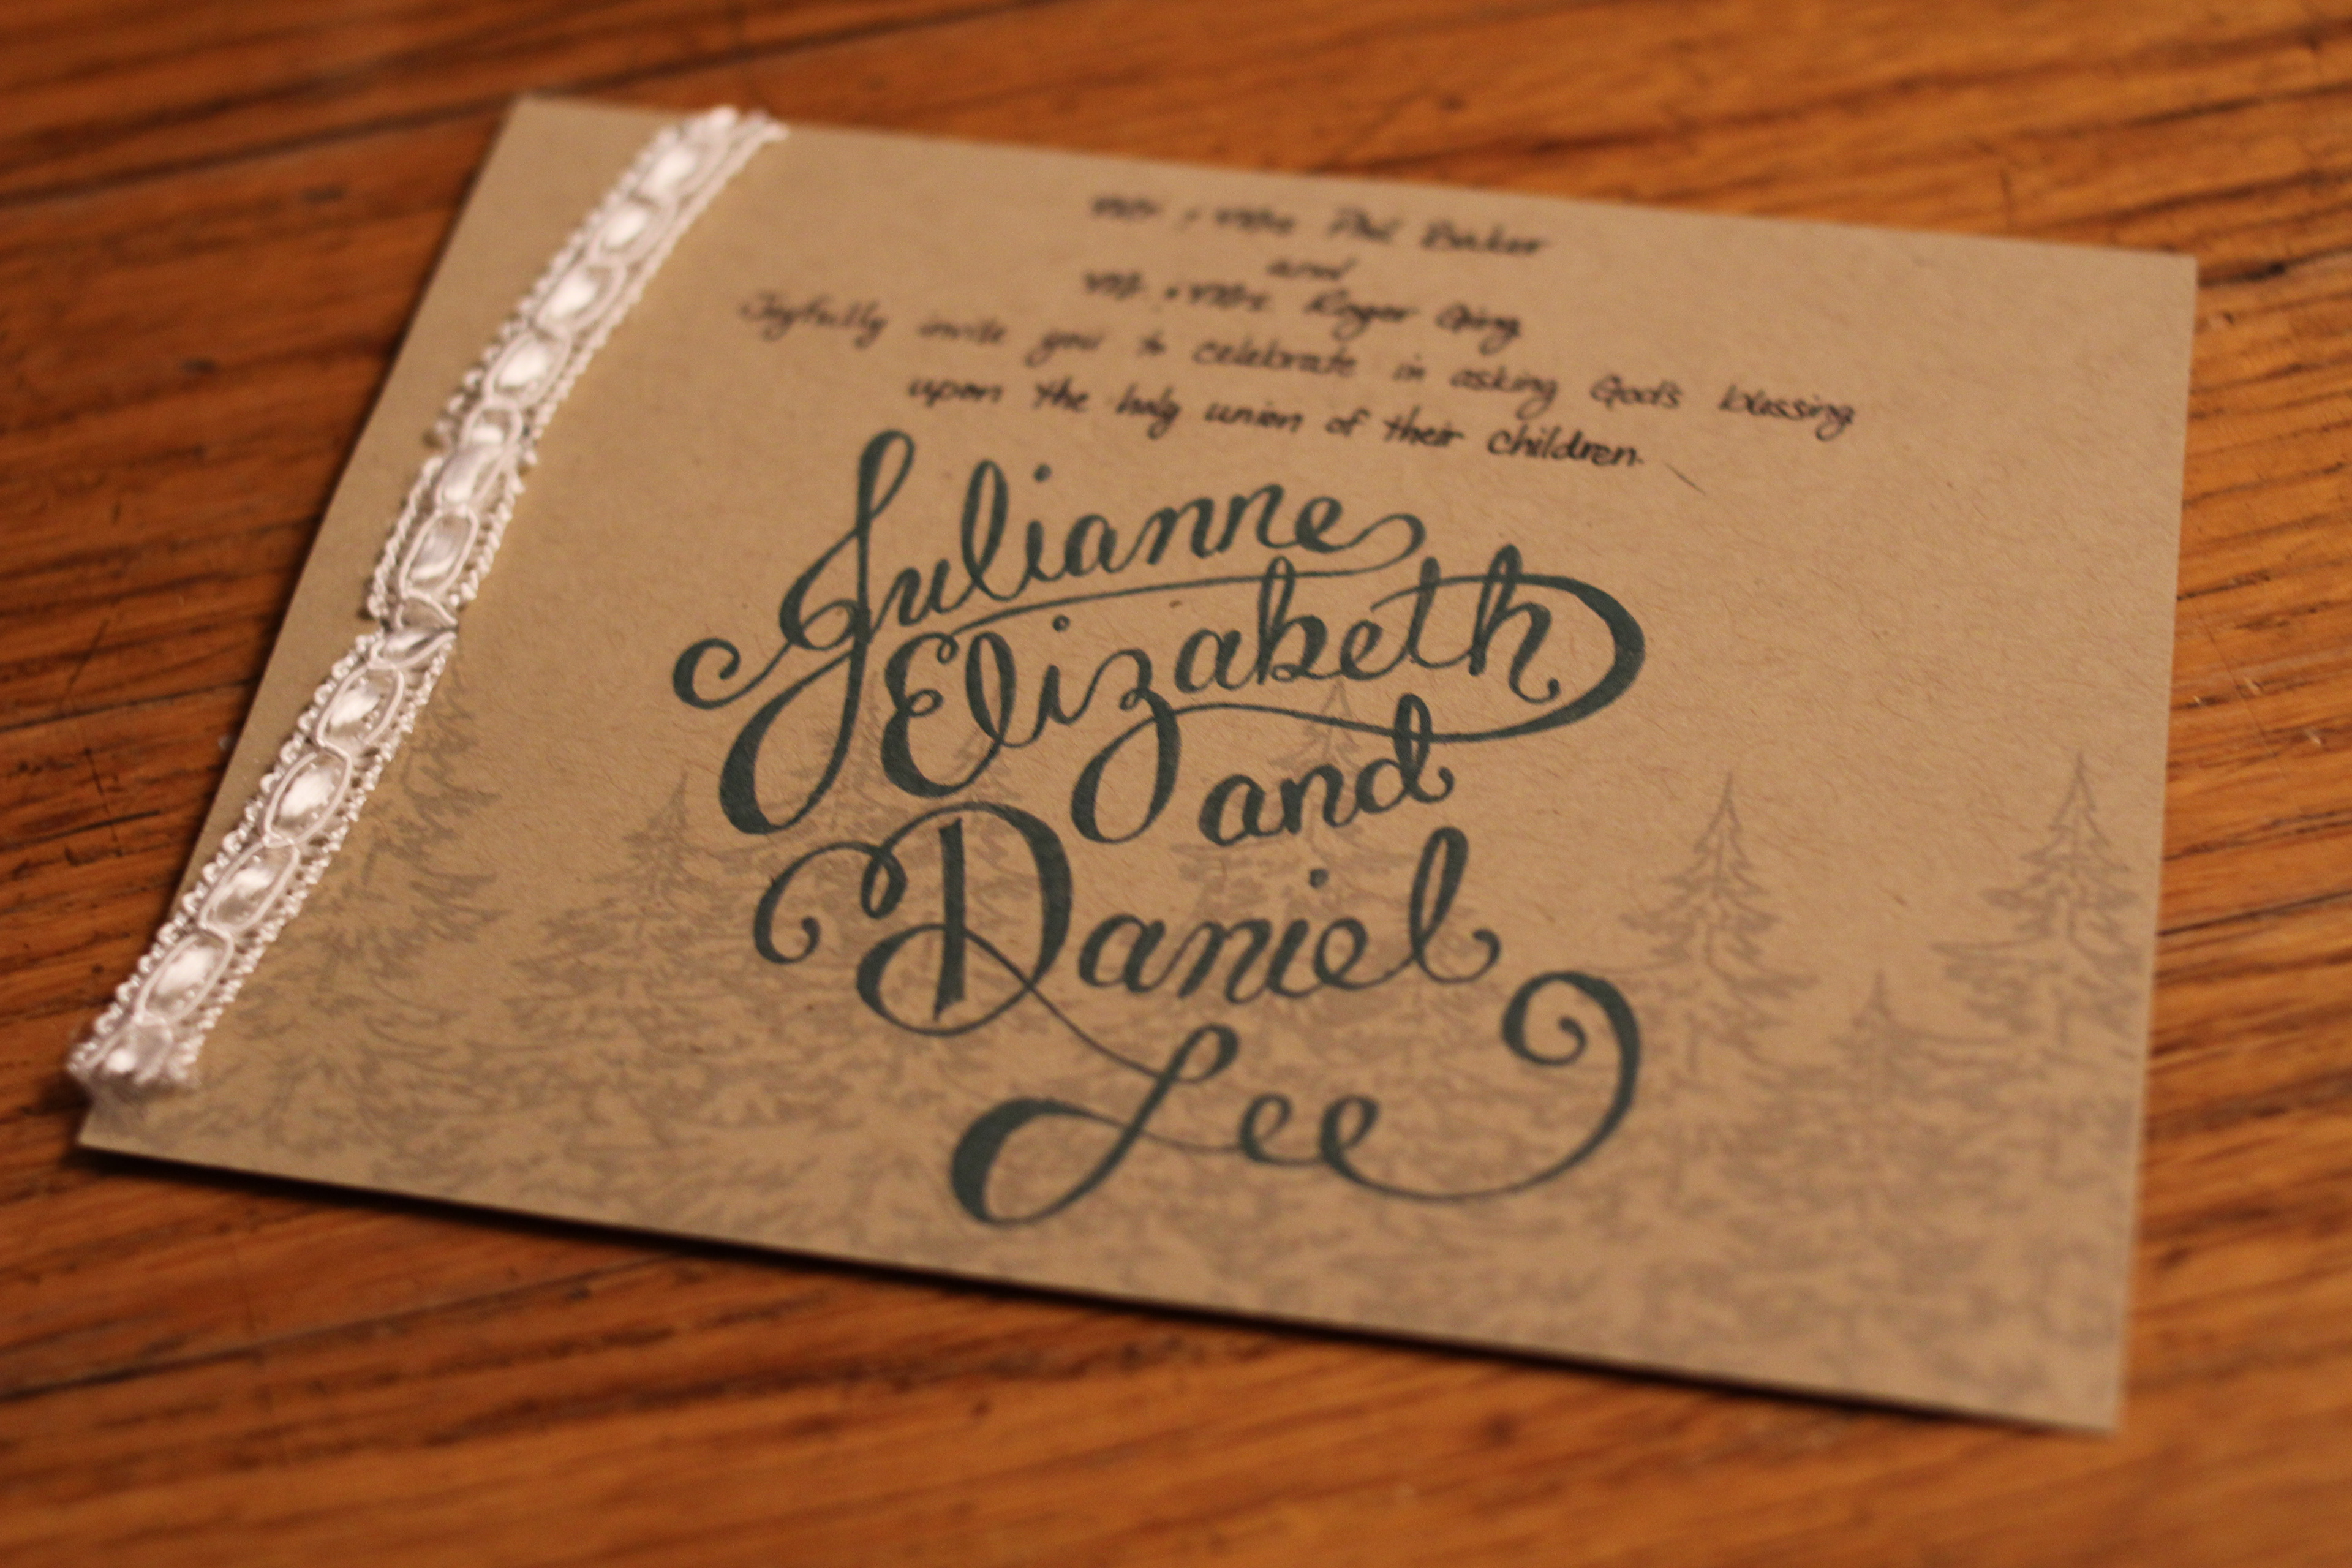 Mr & Mrs Phil Baker
and
Mr. & Mrs. Roger Ging
Joyfully invite you to celebrate in asking God's blessing
upon the holy union of their children.
Julianne
Elizabeth
and
Daniel
Lee